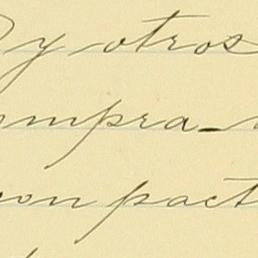 y otros
ompra
con pact